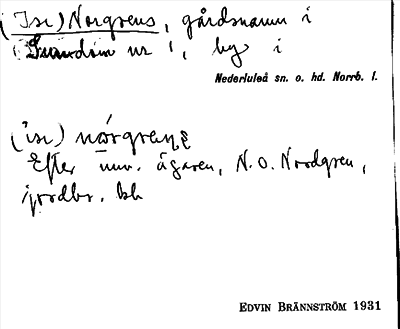 (Isr) Norgrens, gårdsnamn i
Sundom nr 1, by i
Nederluleå sn. o. hd. Norrb. l.
Efter nuv. ägaren, N. O. Nordgren,
jordbr. bh
EDVIN BRÄNNSTRÖM 1931